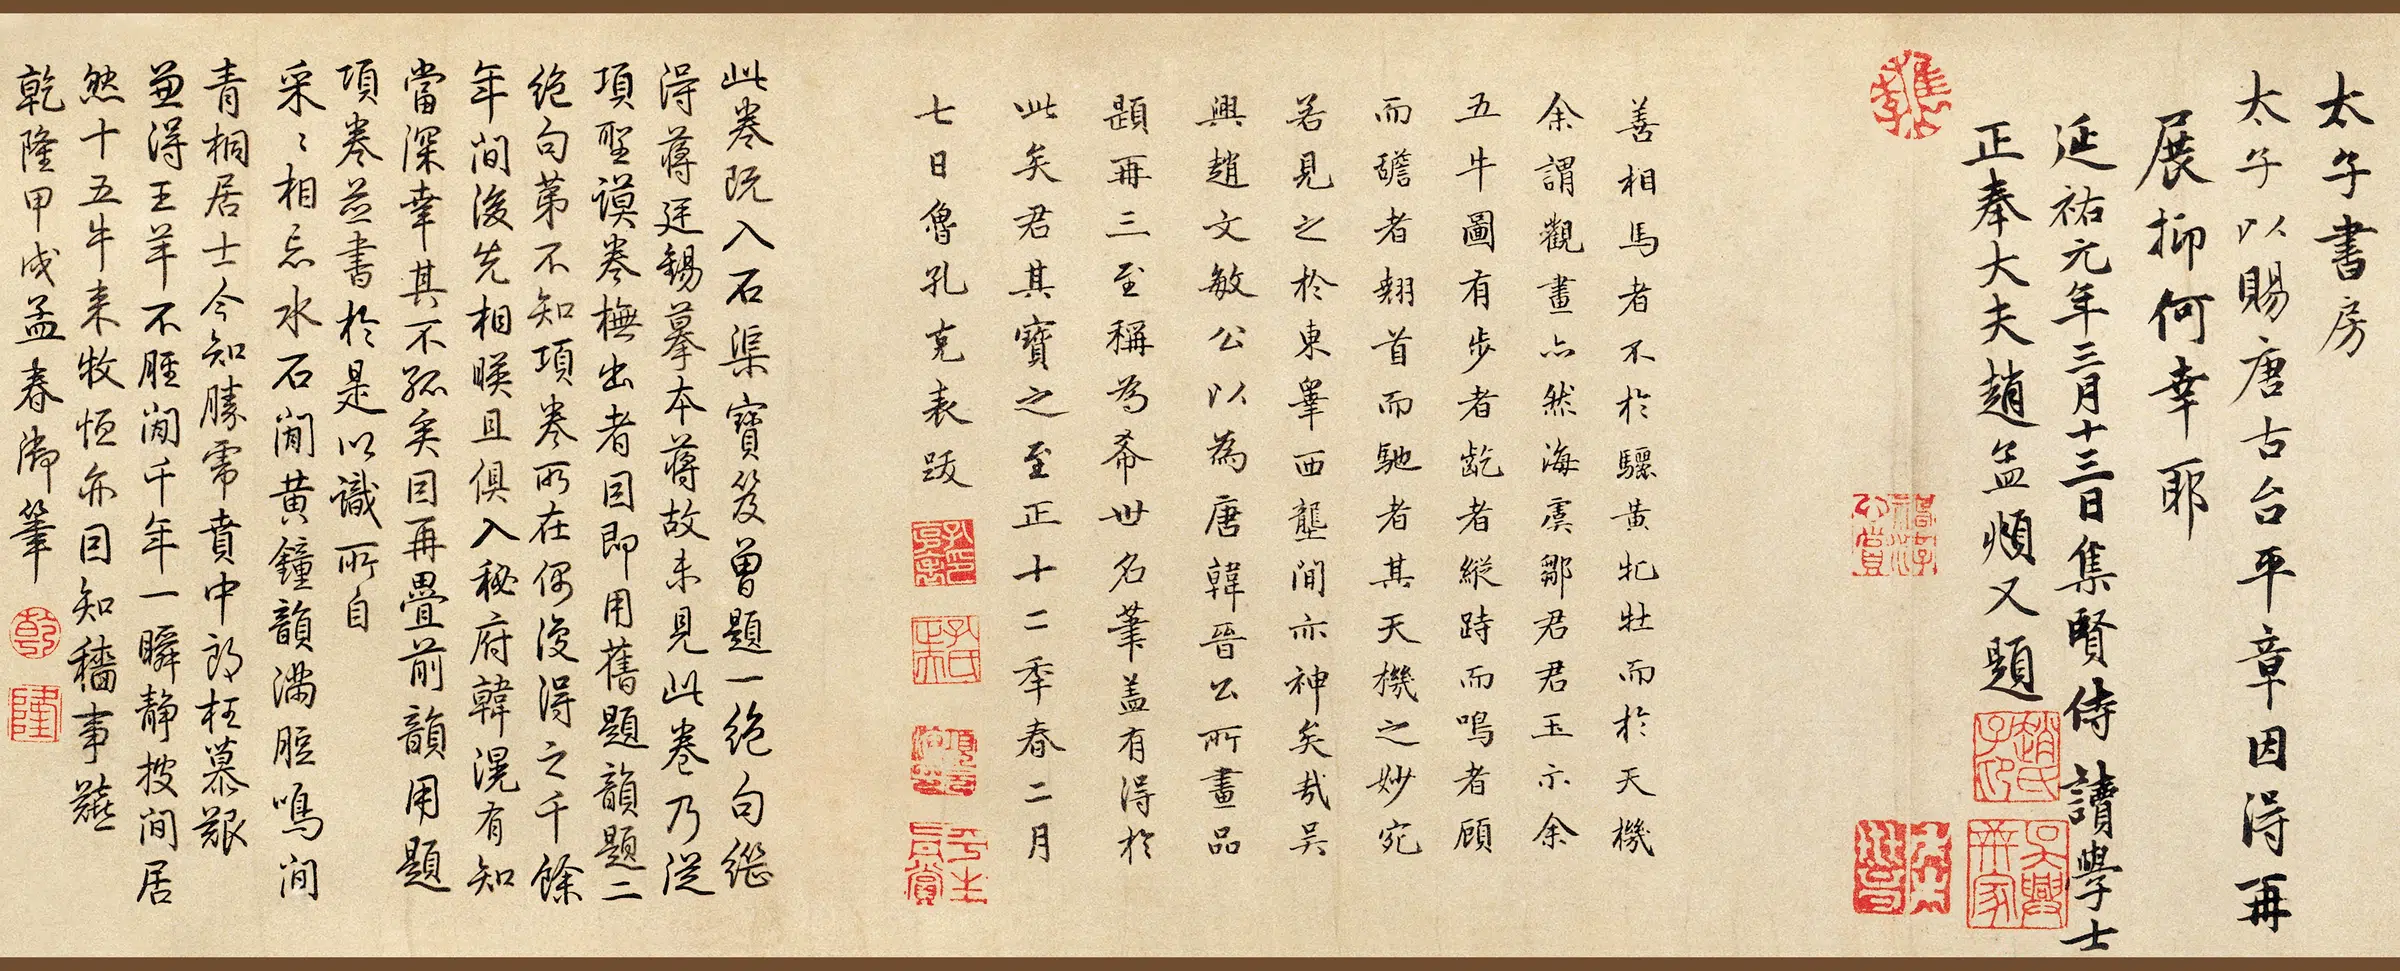 太子書房
太子以賜唐古台平章因得再
展抑何幸耶
延祐元年三月十三日集賢侍讀學士
正奉大夫趙孟頫又題
趙氏子昂
吳興
善相馬者不於驪黃牝牡而於天機
余謂觀畫亦然海虞鄒君君玉示余
五牛圖有步者齕者縱跱而鳴者顧
而者翹首而馳者其天機之妙宛
若見之於東皋西壟間亦神矣哉吳
興趙文敏公以為唐韓晉公所畫品
題再三至稱為希世名筆盖有得於
此矣君其寶之至正十二季春二月
七日魯孔克表跋
此卷既入石渠寶笈曾題一絕句繼
得蔣廷錫摹本蔣故未見此卷乃從
項聖謨卷橅出者因即用舊題韻題二
絕句第不知項卷所在偶復得之千餘
年間後先相暎且俱入秘府韓滉有知
當深幸其不孤矣因再疊前韻用題
項卷並書於是以識所自
采〻相忘水石閒黃鐘韻滿脰鳴間
青桐居士今知勝帟賁中郎枉慕艱
兼得王羊不脛閒千年一瞬靜披間居
然十五牛來牧恒亦因知穡事艱
乾隆甲戌孟春御筆
乾
隆